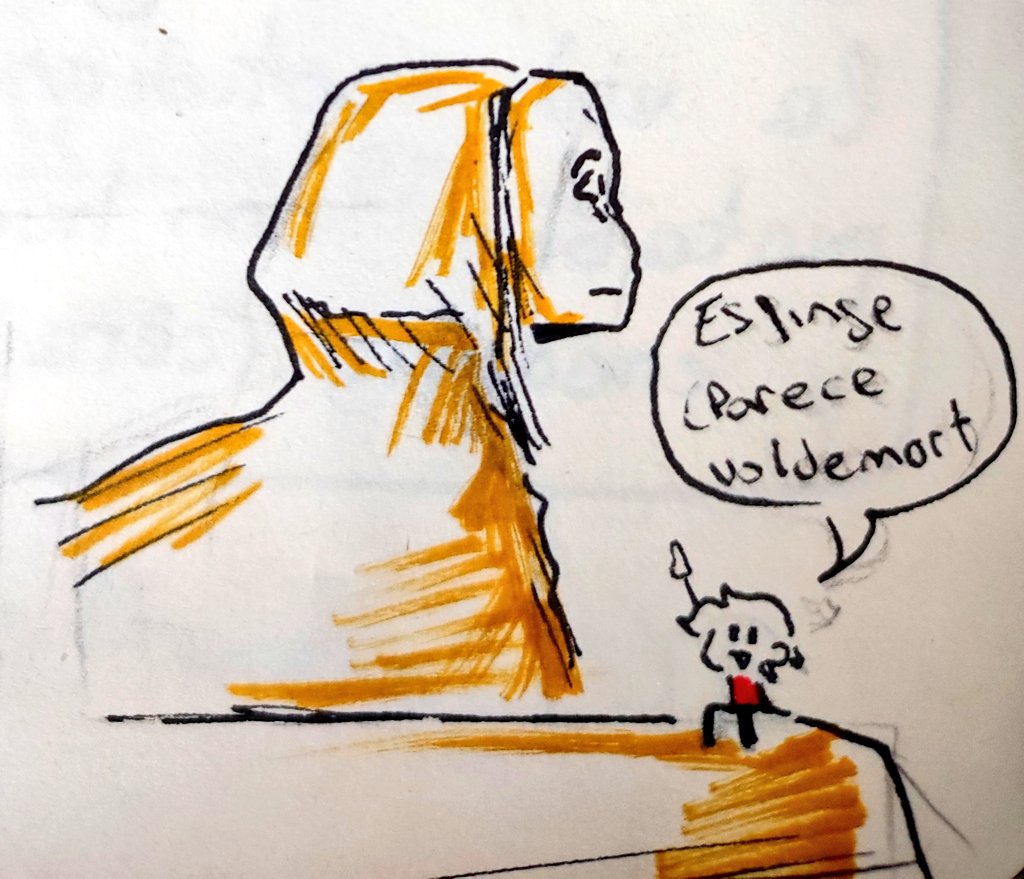 Esfinge
(Parece
voldemort